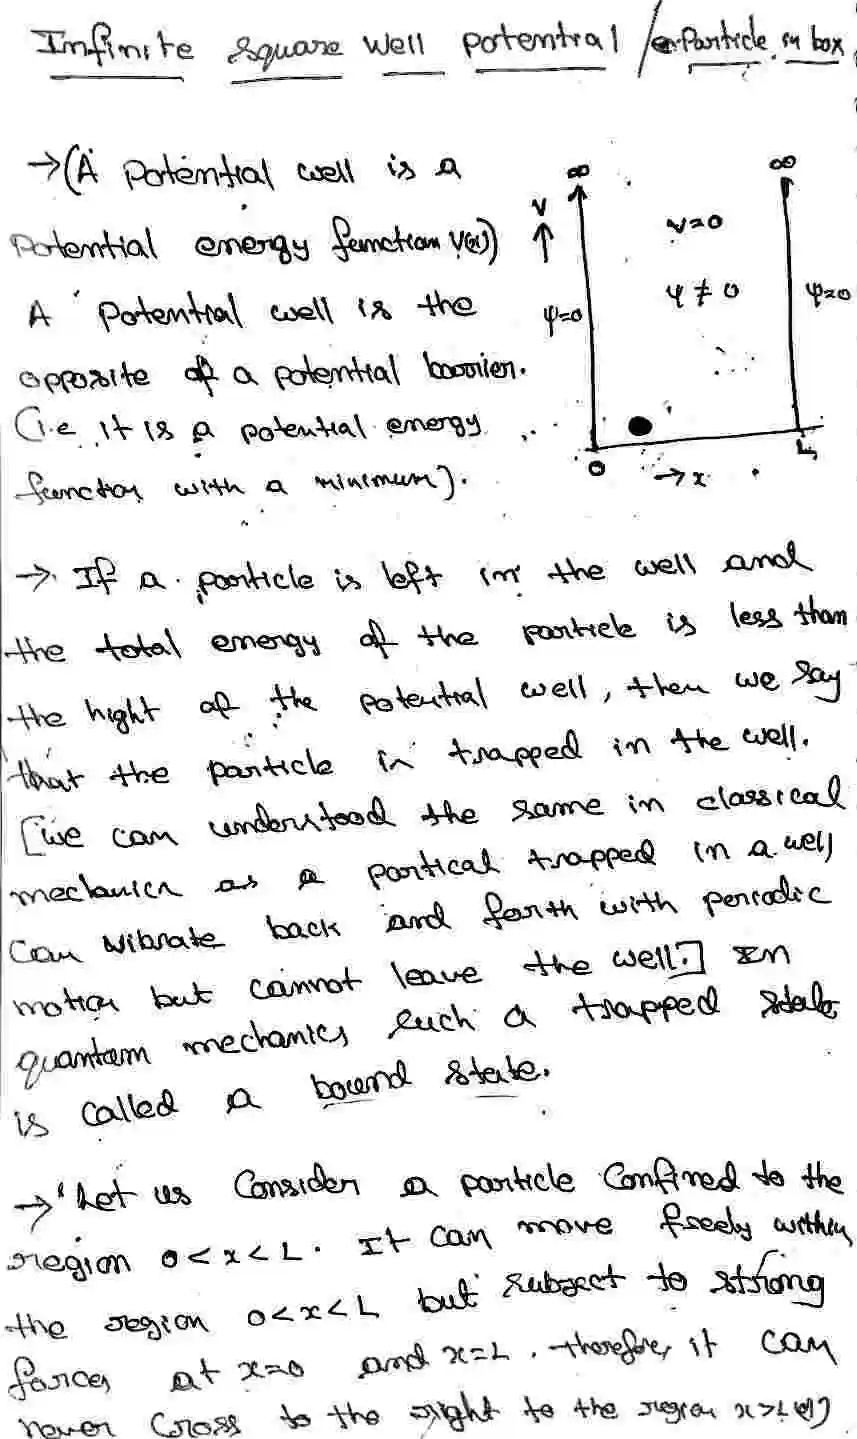 Infinite square well potential / or Particle in box
→(A potential well is a
potential energy function V(x))
A potential well is the
opposite of a potential barrier.
(i.e it is a potential energy
function with a minimum).
∞ ∞
V ↑
V=0
ψ≠0
ψ=0
ψ=0
0
→x
L
→ If a particle is left in the well and
the total energy of the particle is less than
the hight of the potential well, then we say
that the particle in trapped in the well.
[we can understood the same in classical
mechanics as a partical trapped in a well
can vibrate back and forth with periodic
motion but cannot leave the well.] In
quantam mechanics such a trapped state
is called a bound state.
→ Let us Consider a particle Confined to the
region 0<x<L. It can move freely within
the region 0<x<L but subject to strong
forces at x=0 and x=L. therefore, it can
never Cross to the right to the region x>L